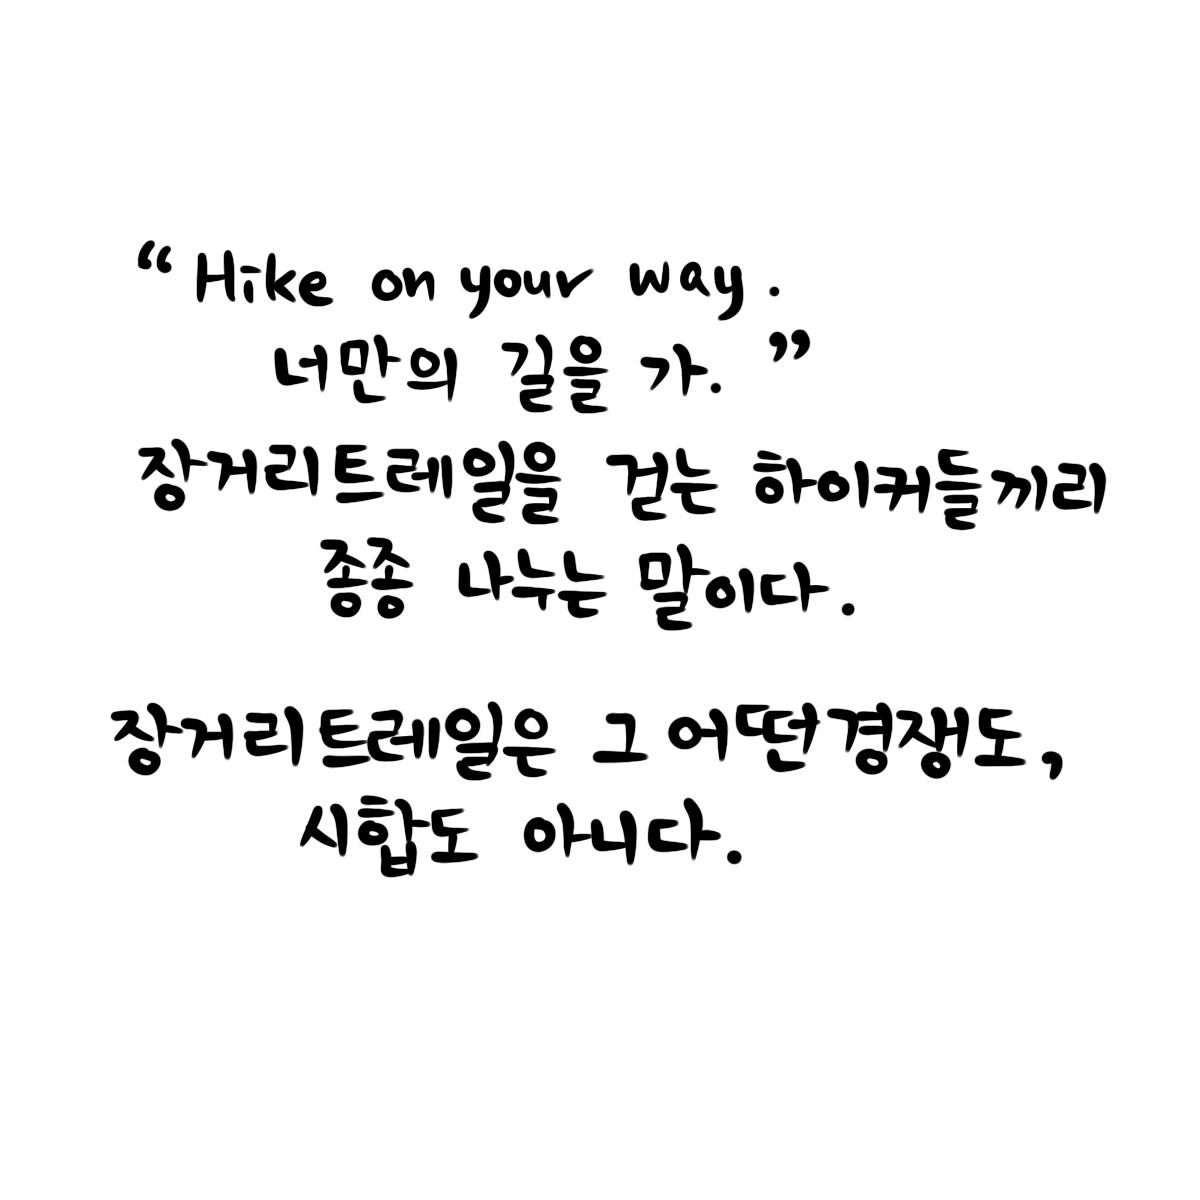 “ Hike on your way.
너만의 길을 가. ”
장거리트레일을 걷는 하이커들끼리
종종 나누는 말이다.
장거리트레일은 그 어떤경쟁도,
시합도 아니다.